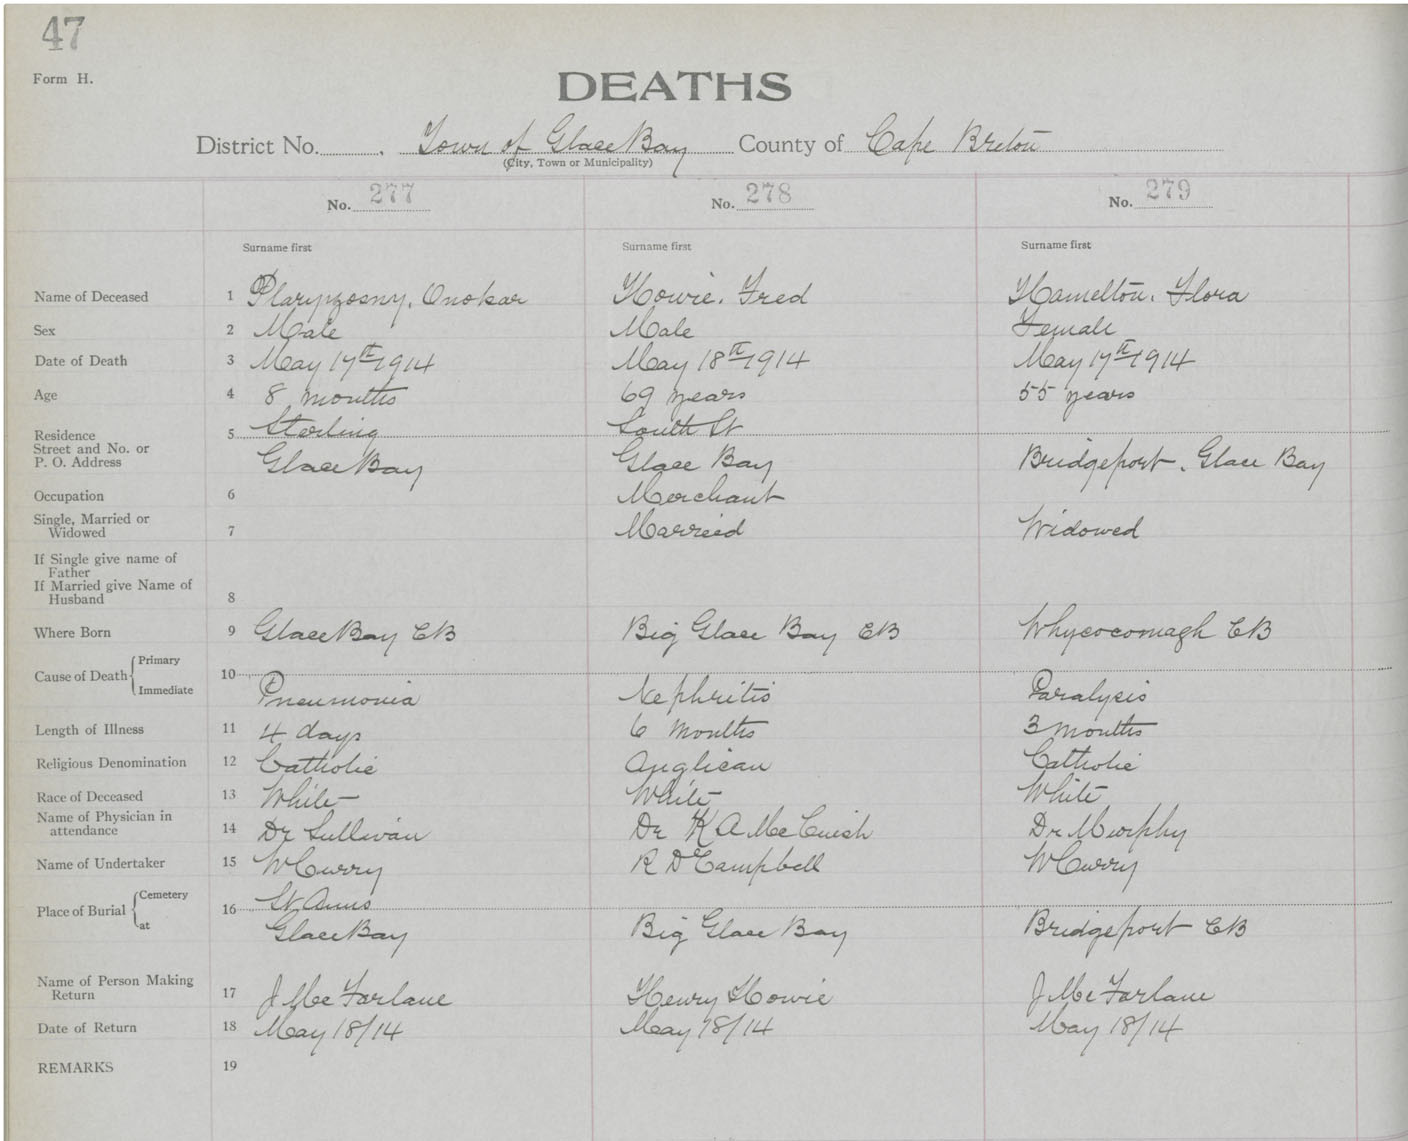 47
Form H.
DEATHS
District No. , Town of Glace Bay County of Cape Breton
(City, Town or Municipality)
No. 277 No. 278 No. 279
Surname first Surname first Surname first
Name of Deceased 1 Plarypzosny, Onokar Howie. Fred Hamelton. Flora
Sex 2 Male Male Female
Date of Death 3 May 17th 1914 May 18th 1914 May 17th 1914
Age 4 8 months 69 years 55 years
Residence 5 Sterling South St
Street and No. or
P. O. Address Glace Bay Glace Bay Bridgeport, Glace Bay
Occupation 6 Merchant
Single, Married or
Widowed 7 Married Widowed
If Single give name of
Father
If Married give Name of
Husband 8
Where Born 9 Glace Bay CB Big Glace Bay CB Whycocomagh CB
Cause of Death Primary 10
Immediate Pneumonia Nephritis Paralysis
Length of Illness 11 4 days 6 months 3 months
Religious Denomination 12 Catholic Anglican Catholic
Race of Deceased 13 White White White
Name of Physician in
attendance 14 Dr Sullivan Dr K A McCuish Dr Murphy
Name of Undertaker 15 W Curry R D Campbell W Curry
Place of Burial Cemetery 16 St Anns
at Glace Bay Big Glace Bay Bridgeport CB
Name of Person Making
Return 17 J McFarlane Henry Howie J McFarlane
Date of Return 18 May 18/14 May 18/14 May 18/14
REMARKS 19